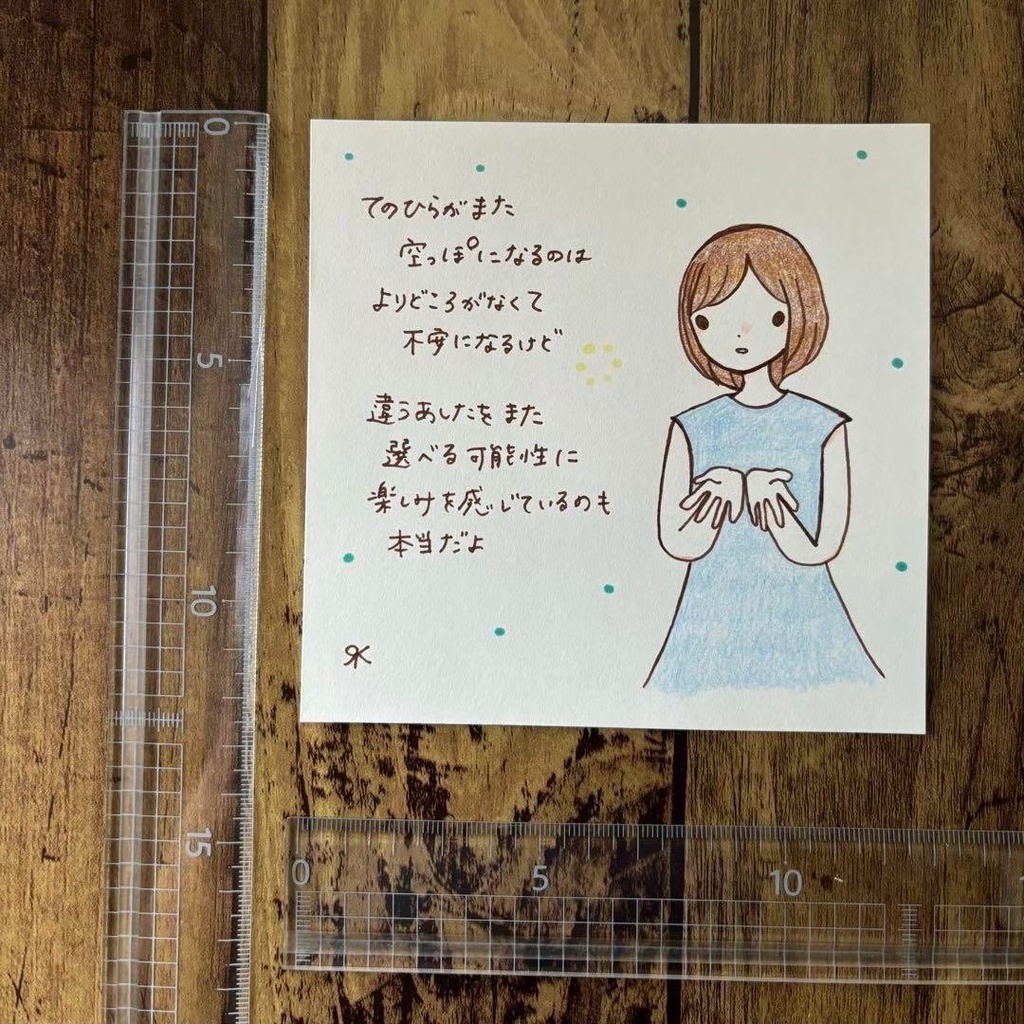 てのひらがまた
空っぽになるのは
よりどころがなくて
不安になるけど
違うあしたをまた
選べる可能性に
楽しみを感じているのも
本当だよ
0
5
10
15
0 5 10